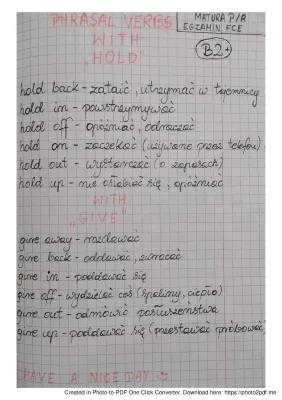 PHRASAL VERBS
MATURA P/R
EGZAMIN FCE
WITH
"HOLD"
B2+
hold back - zataić, utrzymać w tajemnicy
hold in - powstrzymywać
hold off - opóźniać, odraczać
hold on - zaczekać (używane przez telefon)
hold out - wystarczać (o zapasach)
hold up - nie osłabiać się, opóźniać
WITH
"GIVE"
give away - rozdawać
give back - oddawać, zwracać
give in - poddawać się
give off - wydzielać coś (spaliny, ciepło)
give out - odmówić posłuszeństwa
give up - poddawać się (przestawać próbować)
HAVE A NICE DAY
Created in Photo to PDF One Click Converter. Download here: https://photo2pdf.me